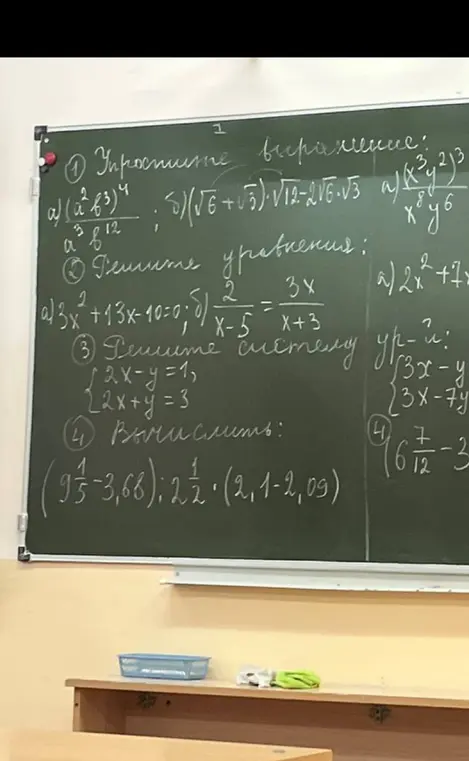 I
① Упростите выражение:
а) (a²b³)⁴ / a³b¹² ; б) (√6 + √3)·√12 - 2√6·√3
② Решите уравнения:
а) 3x² + 13x - 10 = 0; б) 2 / x - 5 = 3x / x + 3
③ Решите систему ур-й:
{ 2x - y = 1;
{ 2x + y = 3
④ Вычислить:
(9 1/5 - 3,68) : 2 1/2 · (2,1 - 2,09)
а) (x³y²)³ / x⁸y⁶
а) 2x² + 7x
{ 3x - y
{ 3x - 7y
④
(6 7/12 - 3